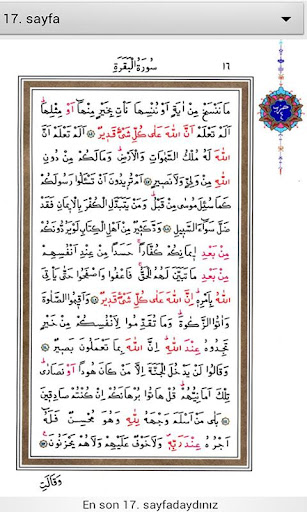 17. sayfa
سُورَةُ الْبَقَرَةِ ١٦
مَا نَنْسَخْ مِنْ اٰيَةٍ اَوْ نُنْسِهَا نَأْتِ بِخَيْرٍ مِنْهَٓا اَوْ مِثْلِهَاۜ
اَلَمْ تَعْلَمْ اَنَّ اللّٰهَ عَلٰى كُلِّ شَيْءٍ قَد۪يرٌ اَلَمْ تَعْلَمْ اَنَّ
اللّٰهَ لَهُ مُلْكُ السَّمٰوَاتِ وَالْاَرْضِۜ وَمَا لَكُمْ مِنْ دُونِ
اللّٰهِ مِنْ وَلِيٍّ وَلَا نَص۪يرٍ اَمْ تُر۪يدُونَ اَنْ تَسْـَٔلُوا رَسُولَكُمْ
كَمَا سُئِلَ مُوسٰى مِنْ قَبْلُۜ وَمَنْ يَتَبَدَّلِ الْكُفْرَ بِالْا۪يمَانِ فَقَدْ
ضَلَّ سَوَٓاءَ السَّب۪يلِ وَدَّ كَث۪يرٌ مِنْ اَهْلِ الْكِتَابِ لَوْ يَرُدُّونَكُمْ
مِنْ بَعْدِ ا۪يمَانِكُمْ كُفَّارًاۚ حَسَدًا مِنْ عِنْدِ اَنْفُسِهِمْ
مِنْ بَعْدِ مَا تَبَيَّنَ لَهُمُ الْحَقُّۚ فَاعْفُوا وَاصْفَحُوا حَتّٰى يَأْتِيَ
اللّٰهُ بِاَمْرِه۪ۜ اِنَّ اللّٰهَ عَلٰى كُلِّ شَيْءٍ قَد۪يرٌ وَاَق۪يمُوا الصَّلٰوةَ
وَاٰتُوا الزَّكٰوةَۜ وَمَا تُقَدِّمُوا لِاَنْفُسِكُمْ مِنْ خَيْرٍ
تَجِدُوهُ عِنْدَ اللّٰهِۜ اِنَّ اللّٰهَ بِمَا تَعْمَلُونَ بَص۪يرٌ
وَقَالُوا لَنْ يَدْخُلَ الْجَنَّةَ اِلَّا مَنْ كَانَ هُودًا اَوْ نَصَارٰىۜ
تِلْكَ اَمَانِيُّهُمْۜ قُلْ هَاتُوا بُرْهَانَكُمْ اِنْ كُنْتُمْ صَادِق۪ينَ
بَلٰى مَنْ اَسْلَمَ وَجْهَهُ لِلّٰهِ وَهُوَ مُحْسِنٌ فَلَهُٓ
اَجْرُهُ عِنْدَ رَبِّه۪ۖ وَلَا خَوْفٌ عَلَيْهِمْ وَلَا هُمْ يَحْزَنُونَ
وَقَالَتِ
En son 17. sayfadaydınız